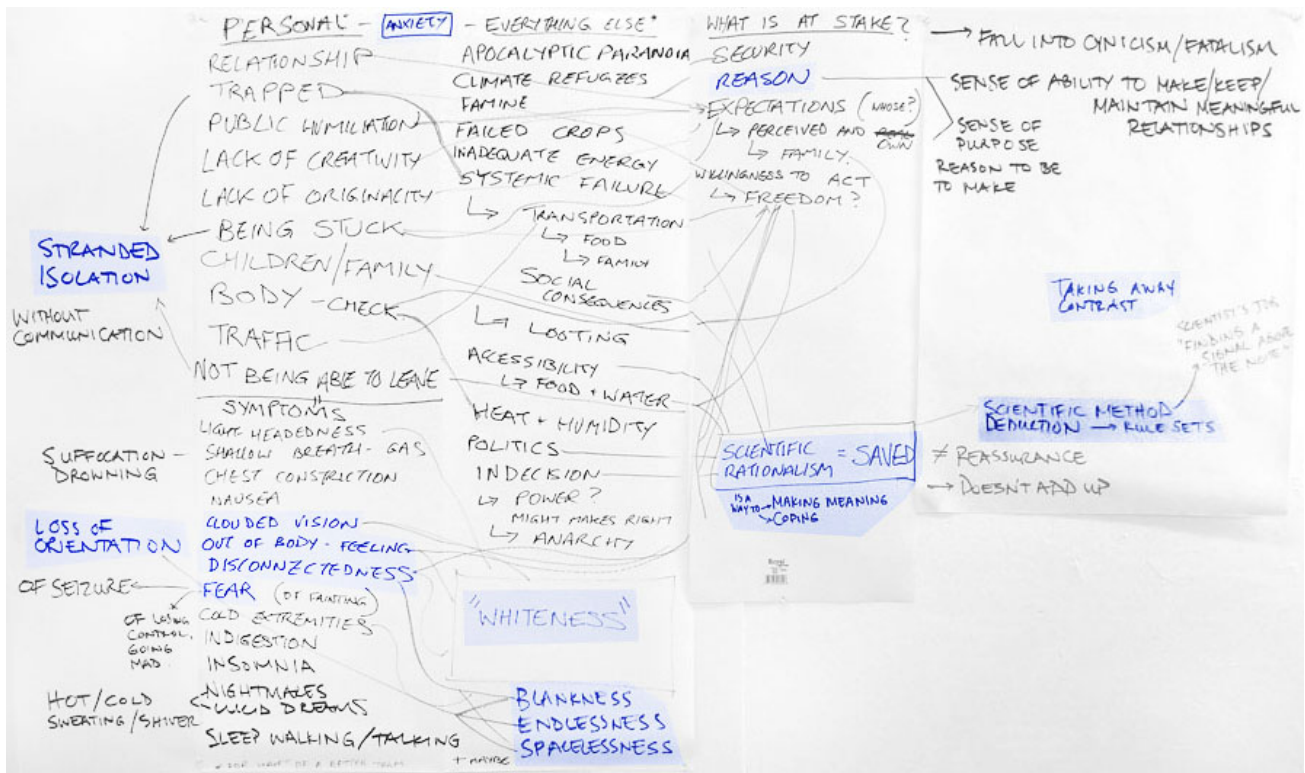 PERSONAL - ANXIETY - EVERYTHING ELSE*
RELATIONSHIP
TRAPPED
PUBLIC HUMILIATION
LACK OF CREATIVITY
LACK OF ORIGINALITY
BEING STUCK
CHILDREN/FAMILY
BODY - CHECK
TRAFFIC
NOT BEING ABLE TO LEAVE
STRANDED
ISOLATION
WITHOUT
COMMUNICATION
SYMPTOMS
LIGHT HEADEDNESS
SHALLOW BREATH - GAS
CHEST CONSTRICTION
NAUSEA
CLOUDED VISION
OUT OF BODY - FEELING
DISCONNECTEDNESS
FEAR (OF FAINTING)
COLD EXTREMITIES
INDIGESTION
INSOMNIA
NIGHTMARES
LUCID DREAMS
SLEEP WALKING/TALKING
* FOR WANT OF A BETTER TERM
SUFFOCATION -
DROWNING
LOSS OF
ORIENTATION
OF SEIZURE
OF LOSING
CONTROL,
GOING
MAD
HOT/COLD
SWEATING/SHIVER
APOCALYPTIC PARANOIA
CLIMATE REFUGEES
FAMINE
FAILED CROPS
INADEQUATE ENERGY
SYSTEMIC FAILURE
↳ TRANSPORTATION
↳ FOOD
↳ FAMILY
SOCIAL
CONSEQUENCES
↳ LOOTING
ACCESSIBILITY
↳ FOOD + WATER
HEAT + HUMIDITY
POLITICS
INDECISION
↳ POWER?
MIGHT MAKES RIGHT
↳ ANARCHY
"WHITENESS"
BLANKNESS
ENDLESSNESS
+ MAYBE SPACELESSNESS
WHAT IS AT STAKE?
SECURITY
REASON
EXPECTATIONS (WHOSE?)
↳ PERCEIVED AND REAL OWN
↳ FAMILY.
WILLINGNESS TO ACT
↳ FREEDOM?
SCIENTIFIC
RATIONALISM = SAVED
IS A
WAY TO → MAKING MEANING
→ COPING
→ FALL INTO CYNICISM/FATALISM
SENSE OF ABILITY TO MAKE/KEEP/
MAINTAIN MEANINGFUL
RELATIONSHIPS
SENSE OF
PURPOSE
REASON TO BE
TO MAKE
TAKING AWAY
CONTRAST
SCIENTIST'S JOB
"FINDING A
SIGNAL ABOVE
THE NOISE"
SCIENTIFIC METHOD
DEDUCTION → RULE SETS
≠ REASSURANCE
→ DOESN'T ADD UP